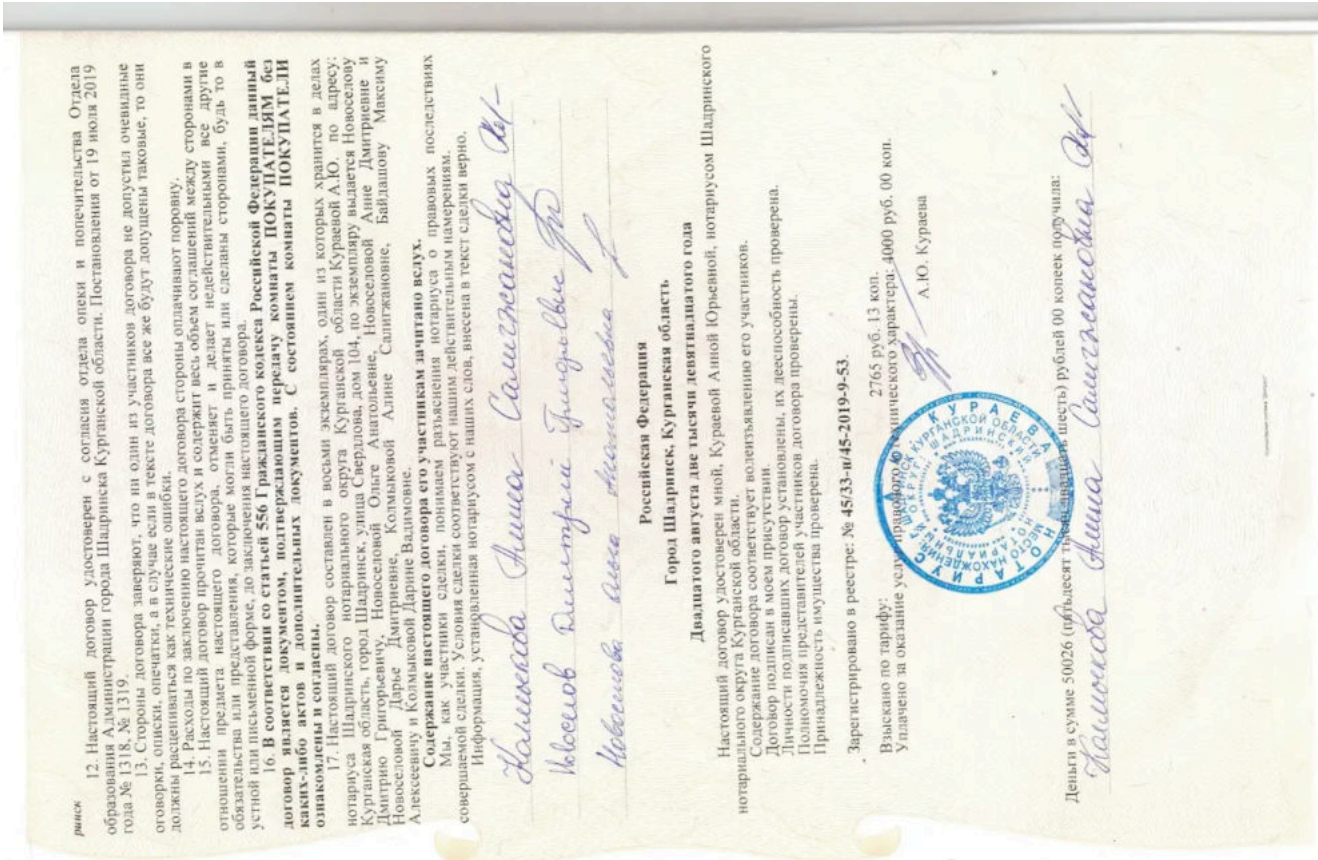 ринск
12. Настоящий договор удостоверен с согласия отдела опеки и попечительства Отдела
образования Администрации города Шадринска Курганской области. Постановления от 19 июля 2019
года № 1318, № 1319.
13. Стороны договора заверяют, что ни один из участников договора не допустил очевидные
оговорки, описки, опечатки, а в случае если в тексте договора все же будут допущены таковые, то они
должны расцениваться как технические ошибки.
14. Расходы по заключению настоящего договора стороны оплачивают поровну.
15. Настоящий договор прочитан вслух и содержит весь объем соглашений между сторонами в
отношении предмета настоящего договора, отменяет и делает недействительными все другие
обязательства или представления, которые могли быть приняты или сделаны сторонами, будь то в
устной или письменной форме, до заключения настоящего договора.
16. В соответствии со статьей 556 Гражданского кодекса Российской Федерации данный
договор является документом, подтверждающим передачу комнаты ПОКУПАТЕЛЯМ без
каких-либо актов и дополнительных документов. С состоянием комнаты ПОКУПАТЕЛИ
ознакомлены и согласны.
17. Настоящий договор составлен в восьми экземплярах, один из которых хранится в делах
нотариуса Шадринского нотариального округа Курганской области Кураевой А.Ю. по адресу:
Курганская область, город Шадринск, улица Свердлова, дом 104, по экземпляру выдается Новоселову
Дмитрию Григорьевичу, Новоселовой Ольге Анатольевне, Новоселовой Анне Дмитриевне и
Новоселовой Дарье Дмитриевне, Колмыковой Алине Салигжановне, Байдашову Максиму
Алексеевичу и Колмыковой Дарине Вадимовне.
Содержание настоящего договора его участникам зачитано вслух.
Мы, как участники сделки, понимаем разъяснения нотариуса о правовых последствиях
совершаемой сделки. Условия сделки соответствуют нашим действительным намерениям.
Информация, установленная нотариусом с наших слов, внесена в текст сделки верно.
Колмыкова Алина Салигжановна
Новоселов Дмитрий Григорьевич
Новоселова Ольга Анатольевна
Российская Федерация
Город Шадринск, Курганская область
Двадцатого августа две тысячи девятнадцатого года
Настоящий договор удостоверен мной, Кураевой Анной Юрьевной, нотариусом Шадринского
нотариального округа Курганской области.
Содержание договора соответствует волеизъявлению его участников.
Договор подписан в моем присутствии.
Личности подписавших договор установлены, их дееспособность проверена.
Полномочия представителей участников договора проверены.
Принадлежность имущества проверена.
Зарегистрировано в реестре: № 45/33-н/45-2019-9-53.
Взыскано по тарифу: 2765 руб. 13 коп.
Уплачено за оказание услуг правового и технического характера: 4000 руб. 00 коп.
А.Ю. Кураева
НОТАРИУС КУРАЕВА
Деньги в сумме 50026 (пятьдесят тысяч двадцать шесть) рублей 00 копеек получила:
Колмыкова Алина Салигжановна